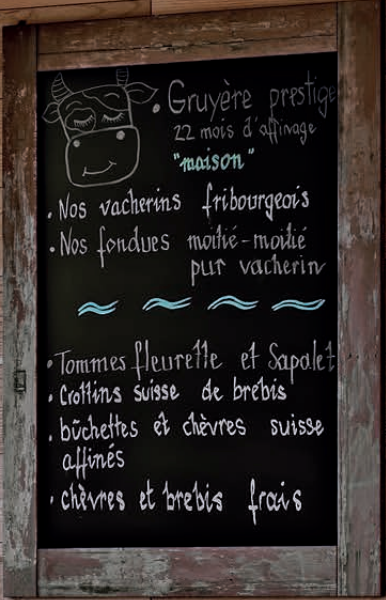 • Gruyère prestige
22 mois d'affinage
"maison"
• Nos vacherins fribourgeois
• Nos fondues moitié-moitié
pur vacherin
• Tommes fleurette et Sapalet
• Crottins suisse de brebis
• bûchettes et chèvres suisse
affinés
• chèvres et brebis frais